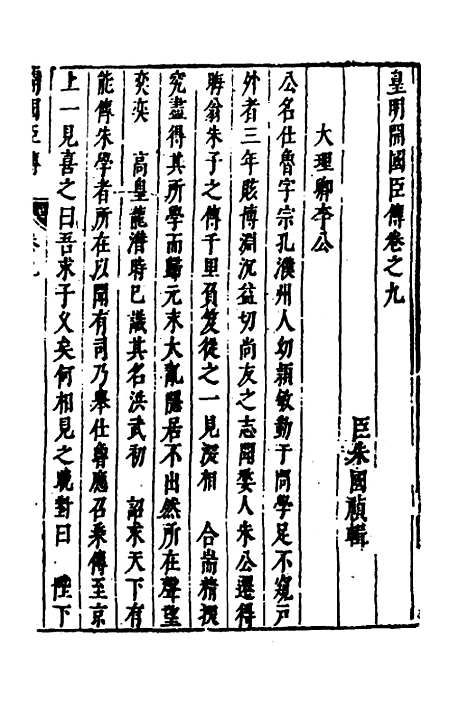 皇明開國臣傳卷之九
臣朱國禎輯
大理卿李公
公名仕魯字宗孔濮州人幼穎敏動于問學足不窺戸
外者三年賅博淵沉益切尚友之志聞婺人朱公遷得
晦翁朱子之傳千里負笈從之一見深相　合耑精授
究盡得其所學而歸元末大亂隱居不出然所在聲望
奕奕　高皇龍濳時已識其名洪武初　詔求天下有
能傳朱學者所在以聞有司乃舉仕魯應召乗傳至京
上一見喜之曰吾求子乆矣何相見之晩對曰　陛下
開國臣傳　卷九